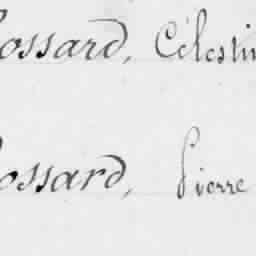 ossard, Célestin
ossard, Pierre